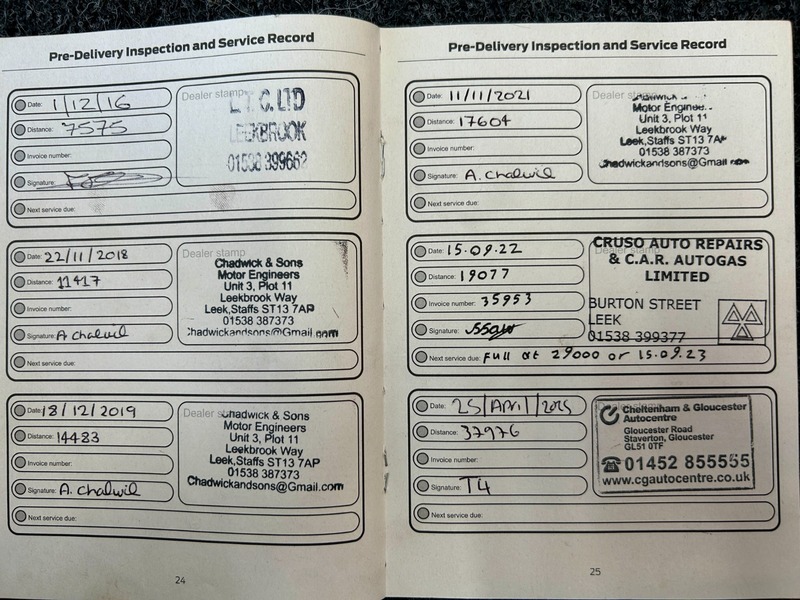 Pre-Delivery Inspection and Service Record
Date: 1/12/16
Distance: 7575
Invoice number:
Signature:
Next service due:
Dealer stamp
L.T.C. LTD
LEEKBROOK
01538 399662
Date: 22/11/2018
Distance: 11417
Invoice number:
Signature: A Chalwil
Next service due:
Dealer stamp
Chadwick & Sons
Motor Engineers
Unit 3, Plot 11
Leekbrook Way
Leek,Staffs ST13 7AP
01538 387373
Chadwickandsons@Gmail.com
Date: 18/12/2019
Distance: 14483
Invoice number:
Signature: A. Chalwil
Next service due:
Dealer s
Chadwick & Sons
Motor Engineers
Unit 3, Plot 11
Leekbrook Way
Leek,Staffs ST13 7AP
01538 387373
Chadwickandsons@Gmail.com
24
Pre-Delivery Inspection and Service Record
Date: 11/11/2021
Distance: 17604
Invoice number:
Signature: A. Chalwil
Next service due:
Dealer stamp
Motor Engine..
Unit 3, Plot 11
Leekbrook Way
Leek,Staffs ST13 7AP
01538 387373
Chadwickandsons@Gmail.com
Date: 15.09.22
Distance: 19077
Invoice number: 35953
Signature:
Next service due: Full at 29000 or 15.09.23
Dealer stamp
CRUSO AUTO REPAIRS
& C.A.R. AUTOGAS
LIMITED
BURTON STREET
LEEK
01538 399377
Date: 25/April/2025
Distance: 37976
Invoice number:
Signature: T4
Next service due:
Dealer stamp
Cheltenham & Gloucester
Autocentre
Gloucester Road
Staverton, Gloucester
GL51 0TF
01452 855555
www.cgautocentre.co.uk
25